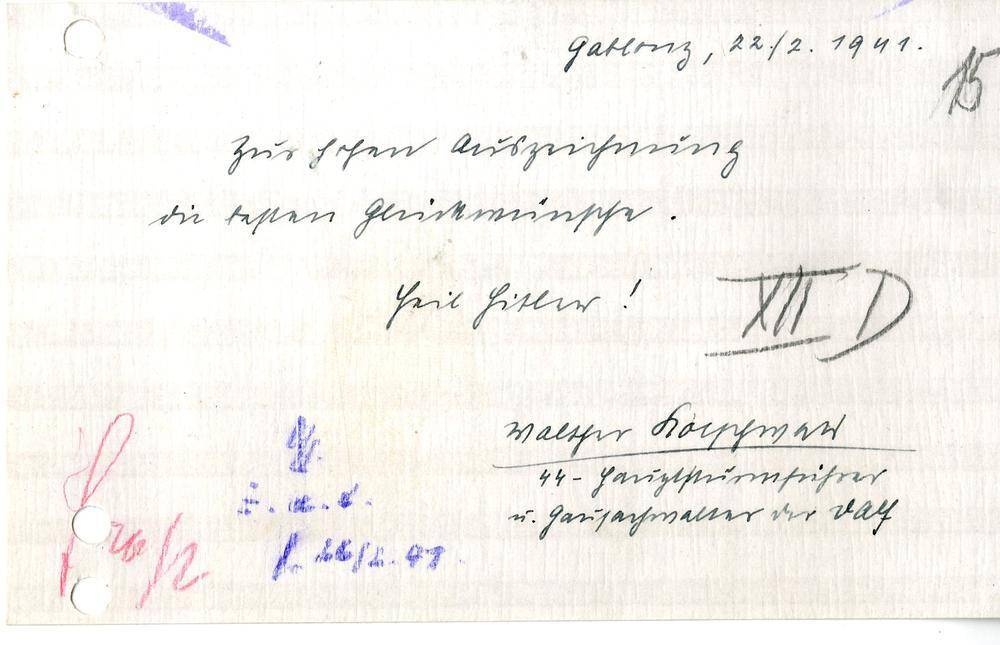 Gablonz, 22./2. 1941.
15
Zur hohen Auszeichnung
die besten Glückwünsche.
Heil Hitler!
XII D
Walther
SS-Hauptsturmführer
u. Gausachwalter der DAF
26/2
Z. d. A.
26/2. 41.